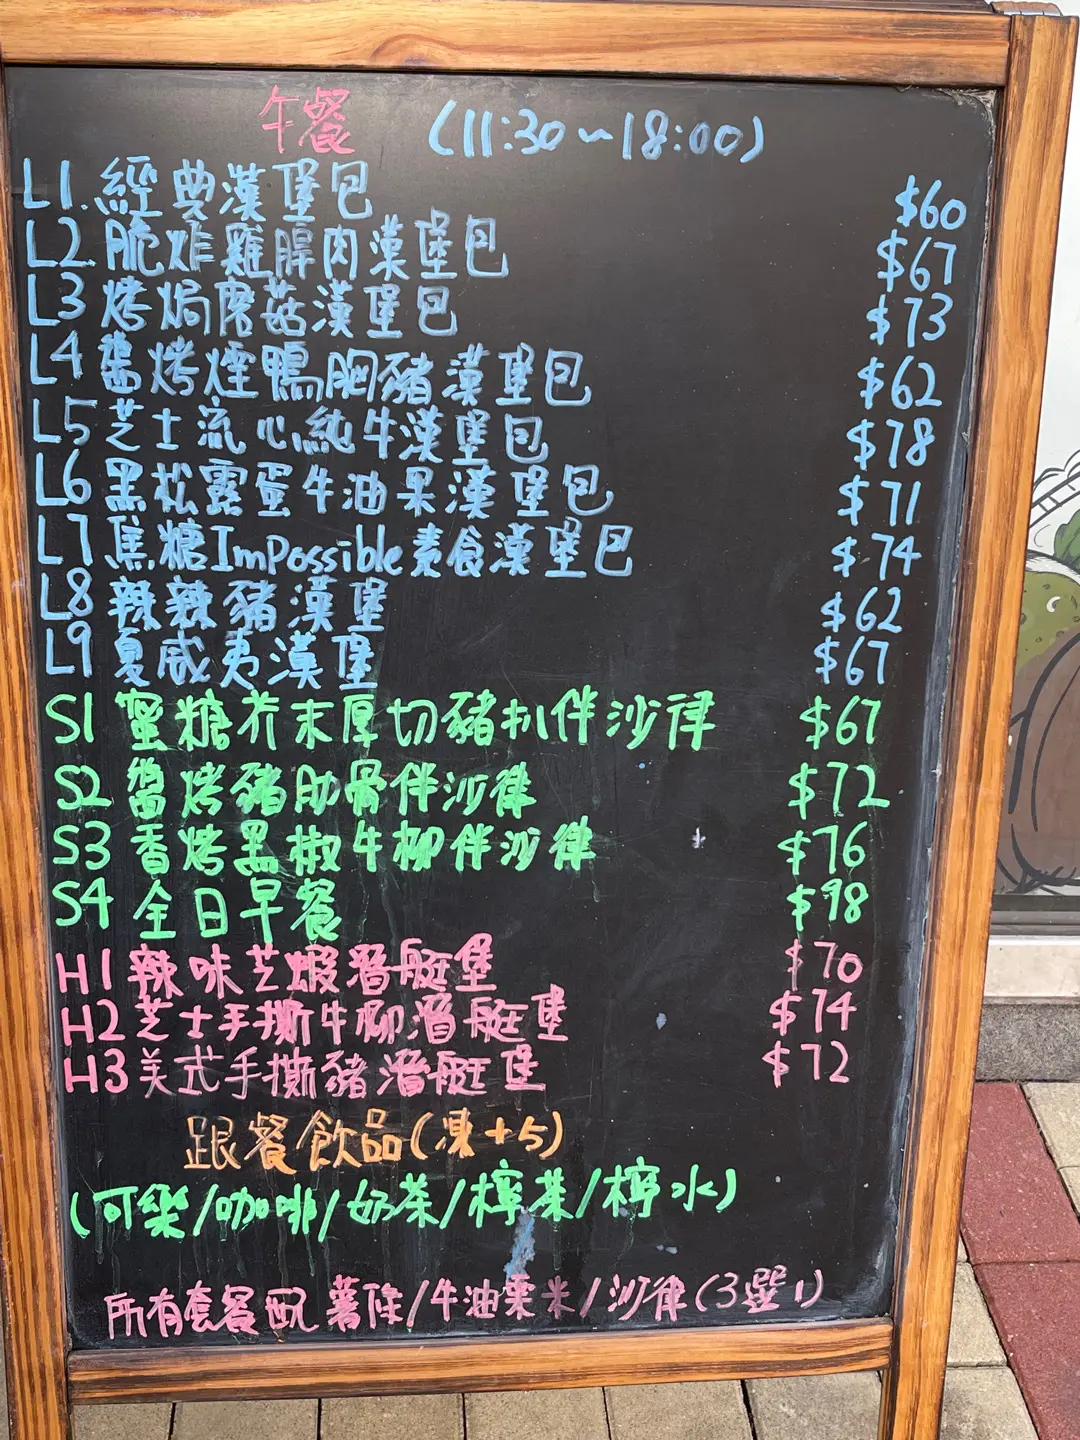 午餐 (11:30~18:00)
L1.經典漢堡包 $60
L2.脆炸雞髀肉漢堡包 $67
L3 烤焗蘑菇漢堡包 $73
L4 醬烤煙鴨胸豬漢堡包 $62
L5 芝士流心純牛漢堡包 $78
L6 黑松露蛋牛油果漢堡包 $71
L7 焦糖Impossible素食漢堡包 $74
L8 辣辣豬漢堡 $62
L9 夏威夷漢堡 $67
S1 蜜糖芥末厚切豬扒伴沙律 $67
S2 醬烤豬肋骨伴沙律 $72
S3 香烤黑椒牛柳伴沙律 $76
S4 全日早餐 $98
H1 辣味芝蝦潛艇堡 $70
H2 芝士手撕牛柳潛艇堡 $74
H3 美式手撕豬潛艇堡 $72
跟餐飲品(凍+5)
(可樂/咖啡/奶茶/檸茶/檸水)
所有套餐配薯條/牛油粟米/沙律(3選1)